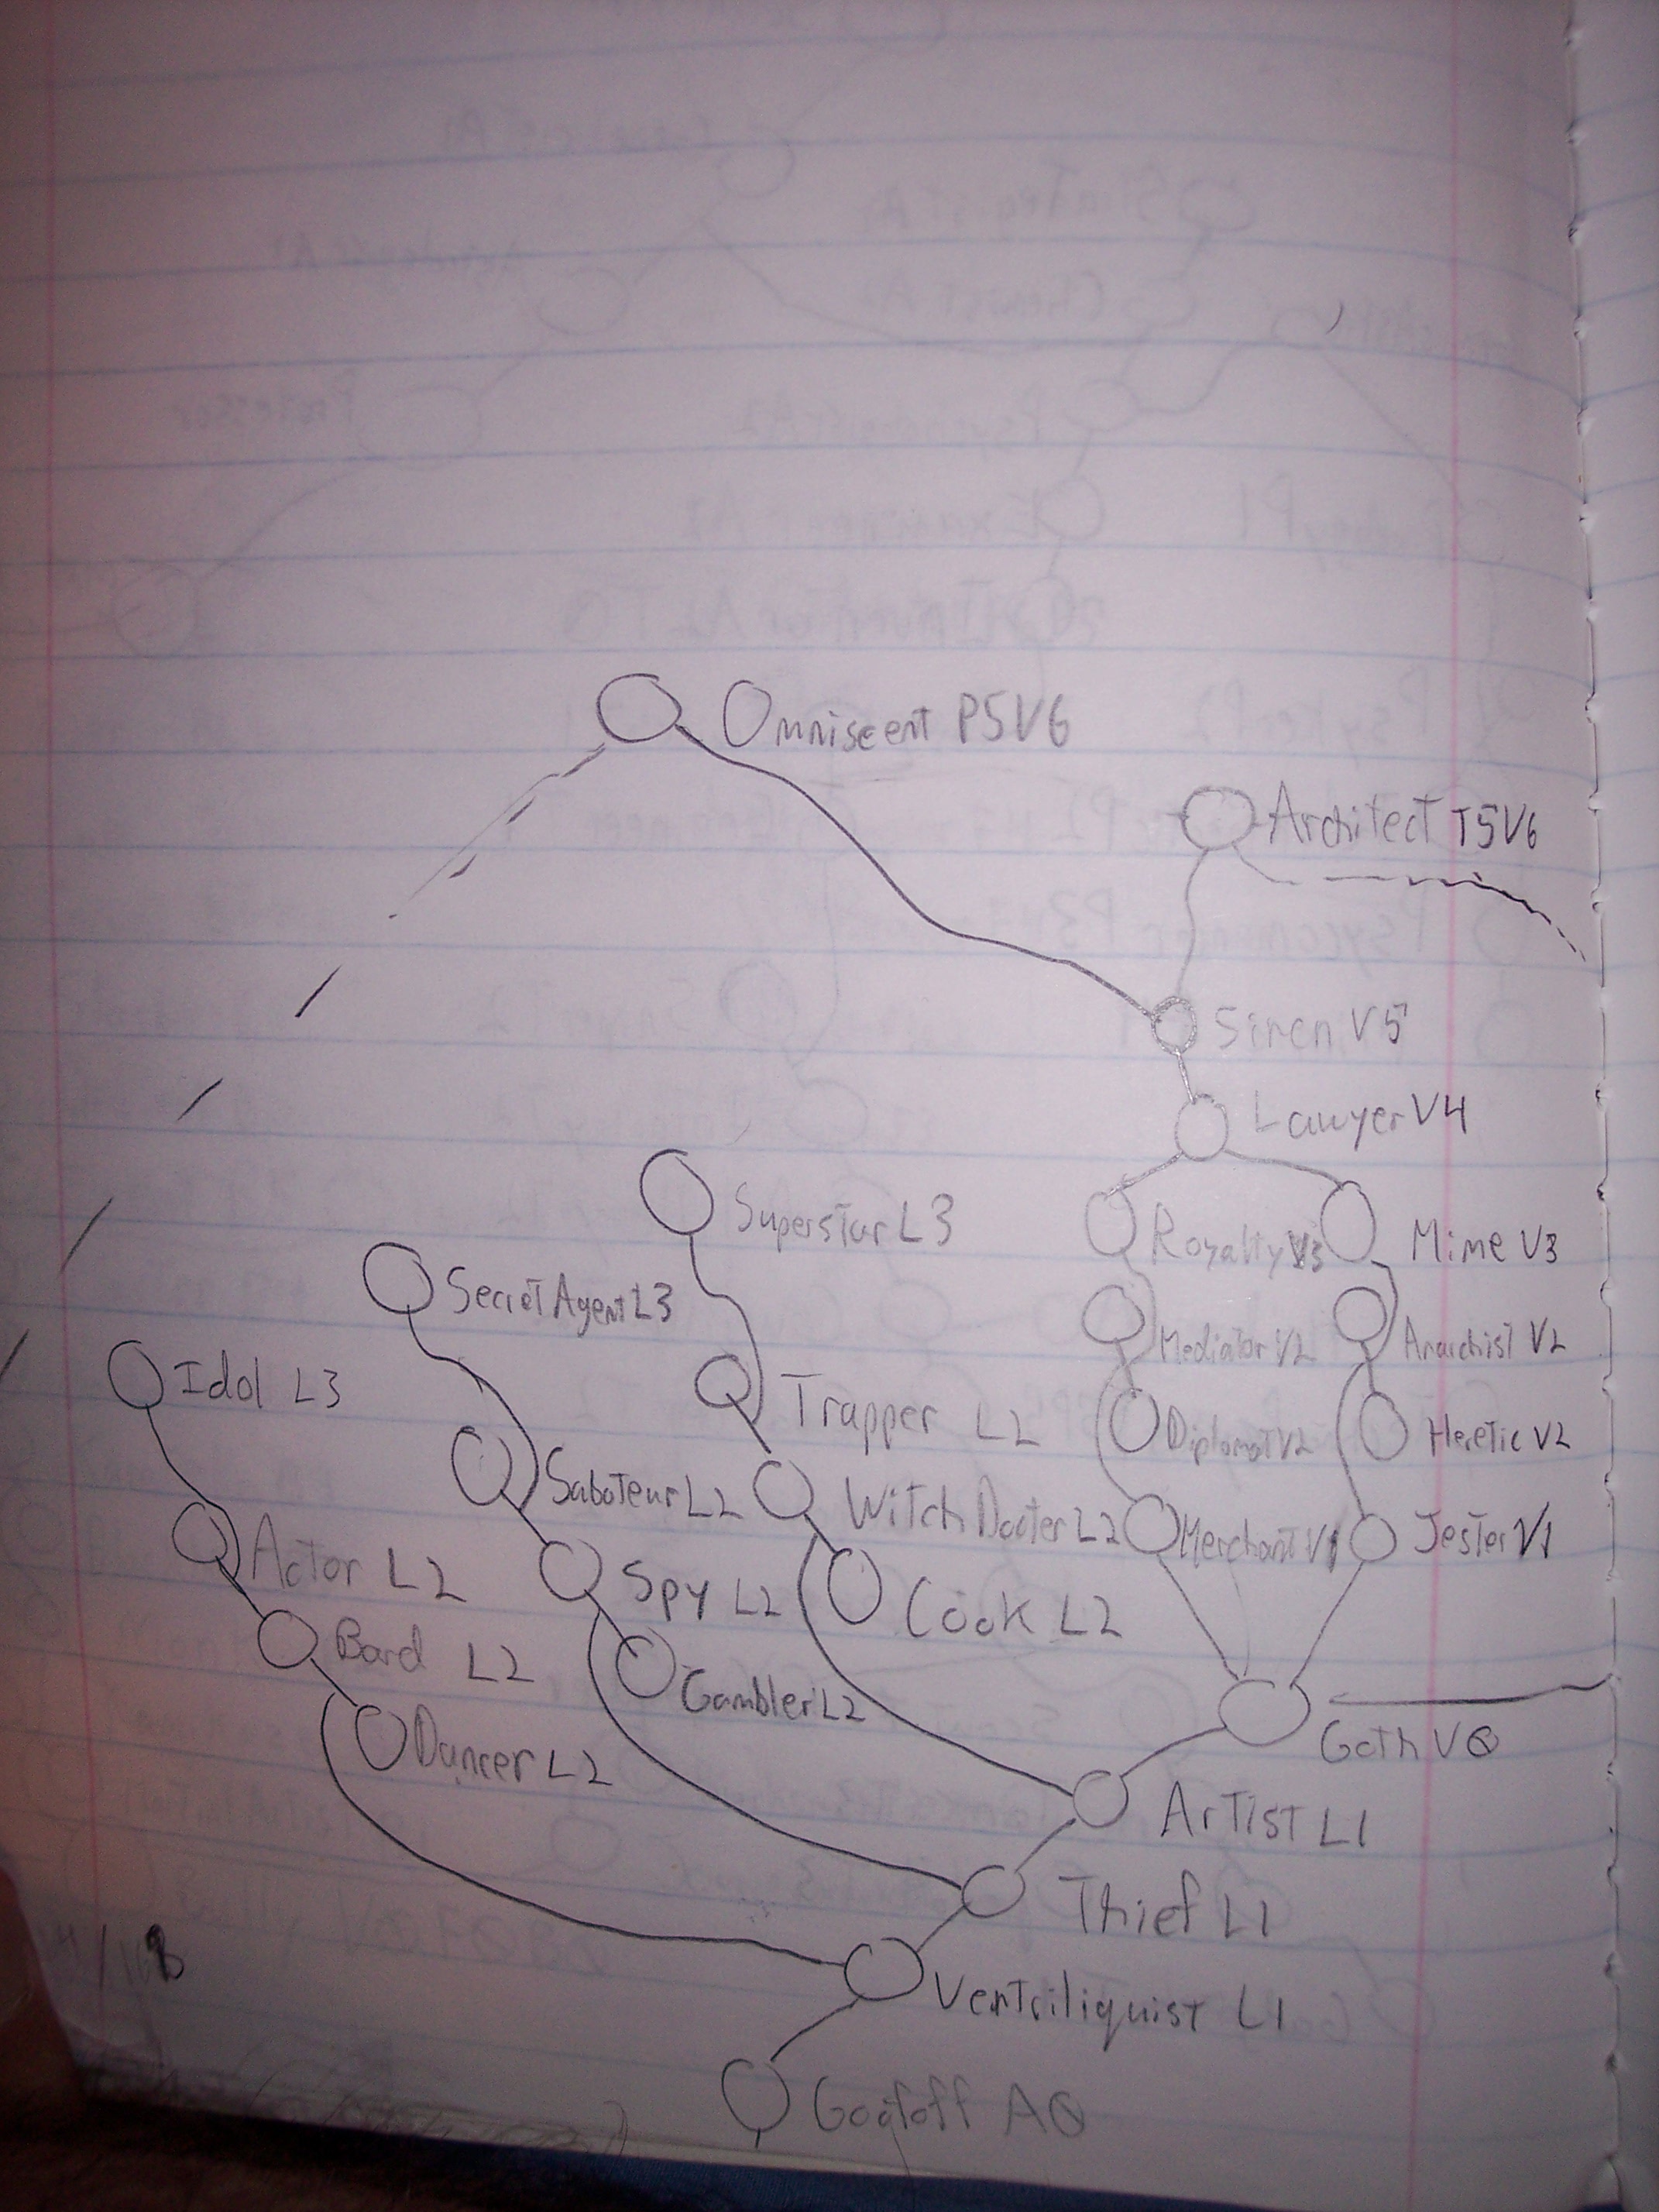 Omniscent P5V6
Architect T5V6
Siren V5
Lawyer V4
Superstar L3
Royalty V3
Mime V3
Secret Agent L3
Mediator V2
Anarchist V2
Idol L3
Trapper L2
Diplomat V2
Heretic V2
Saboteur L2
Witch Docter L2
Merchant V1
Jester V1
Actor L2
Spy L2
Cook L2
Bard L2
Gambler L2
Dancer L2
Goth V0
Artist L1
Thief L1
Ventriliquist L1
Goofoff A0